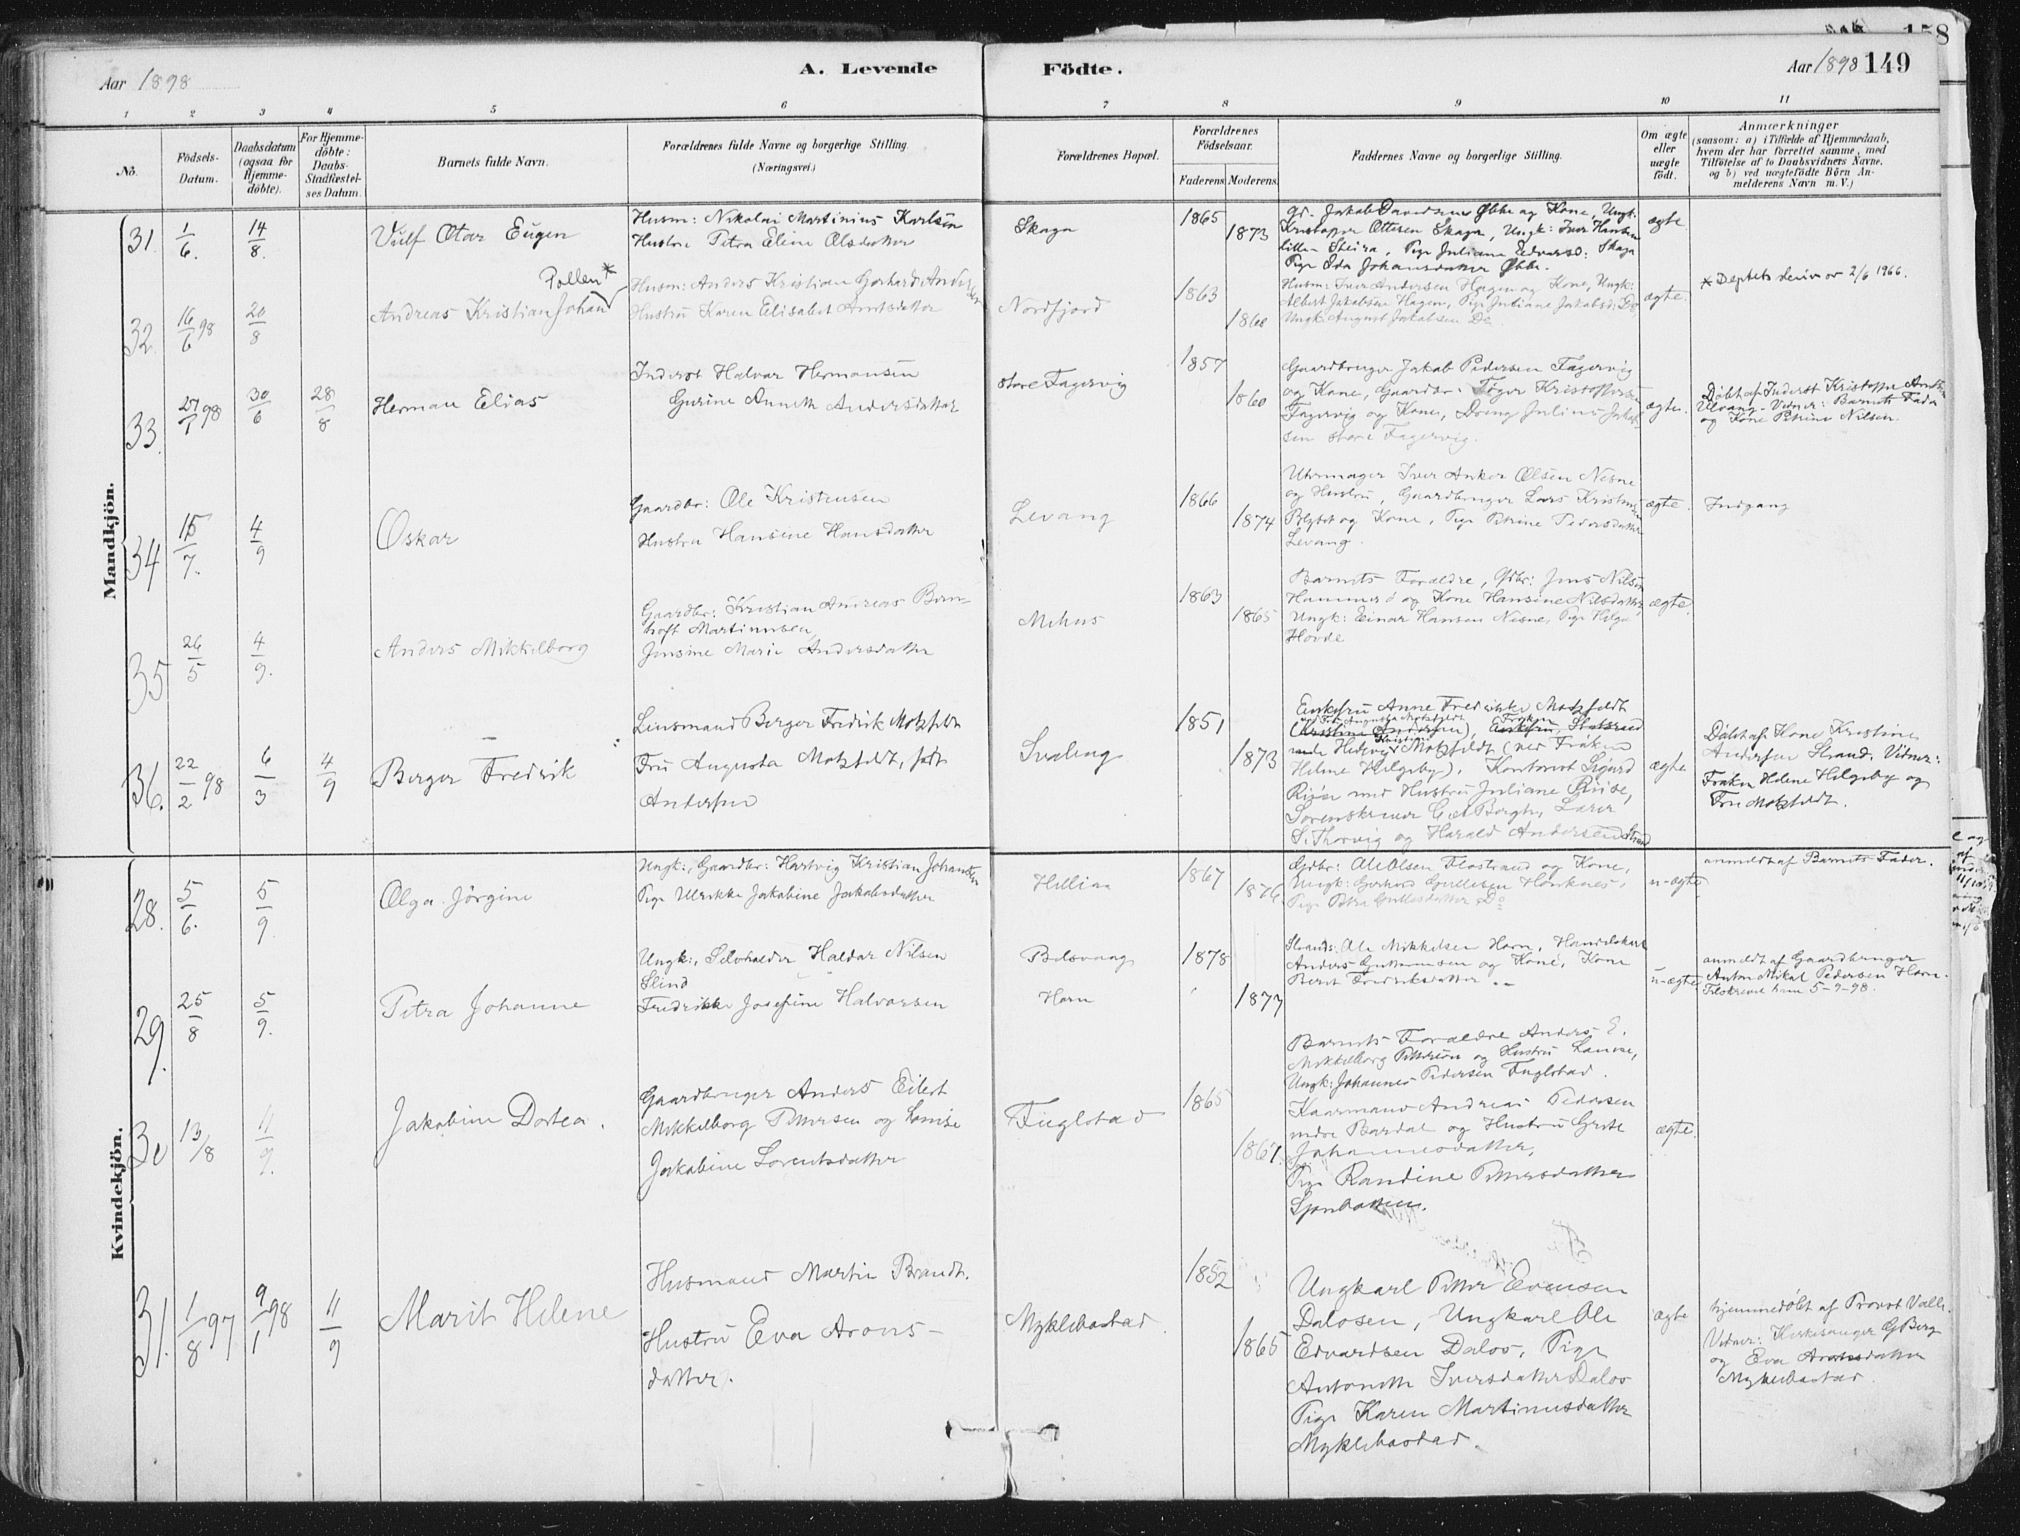 158
Aar 1898
A. Levende
Födte.
Aar 1898 149
1 2 3 4 5 6 7 8 9 10 11
No.
Födsels-Datum.
Daabsdatum (ogsaa for Hjemme-döbte).
For Hjemme-döbte: Daabs-Stadfæstel-ses Datum.
Barnets fulde Navn.
Forældrenes fulde Navne og borgerlige Stilling (Næringsvei.)
Forældrenes Bopæl.
Forældrenes Födselsaar.
Faderens Moderens
Faddernes Navne og borgerlige Stilling.
Om ægte eller uægte födt.
Anmærkninger
(saasom: a) i Tilfælde af Hjemmedaab,
hvem der har forrettet samme, med
Tilföielse af to Daabsvidners Navne,
og b) ved uægtefödte Börn An-
melderens Navn m. V.)
Mandkjön.
31. 1/6. 14/8. Vulf Otar Eugen
Husm: Nikolai Martinius Karlsen
Hustru Petra Eline Olsdatter
Skaga
1865
1873
Gr. Jakob Davidsens Øbbe og Kone, Ungk:
Kristoffer Ottesen Skaga, Ungk: Iver Hansen
Lille Sleira, Pige Juliane Edvards: Skaga
Pige Ida Johansdatter Øbbe.
ægte
32. 16/6 98 20/8
Pollen *
Andreas Kristian Johan
Husm: Anders Kristian Gerhard Andersen
Hustru Karen Elisabet Arntsdatter
Nordfjord
1863
1860
Husm: Iver Andersen Hagen og Kone, Ungk:
Albert Jakobsen Hagen, Pige Juliane Jakobsd. Do
Ungk. August Jakobsen Do
ægte.
* Deptets skriv av 2/6 1966.
33. 27/1 98 30/6 28/8 Herman Elias
Inderst Halvar Hermansen
Gurine Anneth Andersdatter
store Fagervig
1857
1860
Gaardbruger Jakob Pedersen Fagervig
og Kone, Gaardbr: Töger Kristoffersen
Fagervig og Kone, Dreng Julius Jakob-
sen store Fagervig.
ægte.
Döbt af Inderst Kristoffer Arntsen
Ulvang. Vidner: Barnets Fader
og Kone Petrine Nilsen.
34 15/7. 4/9 Oskar
Gaardbr: Ole Kristensen
Hustru Hansine Hansdatter
Levang
1866
1874
Uhrmager Iver Anker Olsen Nesne
og Hustru, Gaardbruger Lars Kristensen
og Kone, Pige Petrine Pedersdatter
Levang.
ægte.
Indgang
35 26/5 4/9. Anders Mikkelborg
Gaardbr: Kristian Andreas Bern-
hoft Martinusen
Jensine Marie Andersdatter
Mehus
1863
1865
Barnets Forældre, Gdbr: Jens Nilsen
Hammerö og Kone Hansine Nilsdatter
Ungk: Einar Hansen Nesne, Pige Helga
Hovde
ægte.
36. 22/2 98 6/3 4/9 Berger Fredrik
Lensmand Berger Fredrik Motzfeldt
Fru Augusta Motzfeldt, født
Andersen
Svaleng
1851
1873
Enkefru Anne Fredrikke Motzfeldt
Hedevig Motzfeldt (ved Frøken
Helene Helgeby). Kontorist Sigurd
Riise med Hustru Juliane Riise,
Sorenskriver C. de Berghs, Lærer
S. Thorvig og Harald Andersen Strand
ægte
Döbt af Kone Kristine
Andersen Strand. Vidner:
Frøken Helene Helgeby og
Fru Motzfeldt.
Kvindekjön.
28. 5/6. 5/9. Olga Jörgine
Ungk: Gaardbr: Hartvig Kristian Johansen
Pige Ulrikke Jakobine Jakobsdatter
Hellia
1867
1876
Gdbr: Ole Olsen Flostrand og Kone,
Ungk: Gerhard Gullesen Hönknes,
Pige Petra Gullesdatter Do
u-ægte
anmeldt af Barnets Fader.
29. 25/8 5/9. Petra Johanne
Ungk:, Selvholder Haldar Nilsen
Slind
Fredrikke Josefine Halvorsen
Belsvaag
Horn
1878
1877
Strands: Ole Mikkelsen Horn, Handelskarl
Anders Guttormsen og Kone, Kone
Berit Fredriksdatter "
u-ægte
anmeldt af Gaardbruger
Anton Mikal Pedersen Horn.
Tilskrevet ham 5-9-98.
30 13/8 11/9. Jakobine Dortea.
Gaardbruger Anders Eilert
Mikkelborg Pettersen og Lovise
Jakobine Lorentsdatter
Fuglstad
1865
1867.
Barnets Forældre Anders E.
Mikkelborg Pettersen og Hustru Lovise,
Ungk: Johannes Pedersen Fuglstad.
Kaarmand Andreas Pedersen
nedre Bardal og Hustru Grete
Johannesdatter,
Pige Randine Pettersdatter
Sjonbotten.
ægte.
31. 1/8 97 9/1 98 11/9 Marit Helene
Husmand Martin Brandt.
Hustru Eva Arons-
datter.
Myklebostad.
1852
1865
Ungkarl Petter Evensen
Dalosen, Ungkarl Ole
Edvardsen Dalos, Pige
Antonette Iversdatter Dalos
Pige Karen Martinusdatter
Myklebostad.
ægte
hjemmedöbt af Provst Valle.
Vidner: Kirkesanger G Berg
og Eva Aronsdatter
Myklebostad.